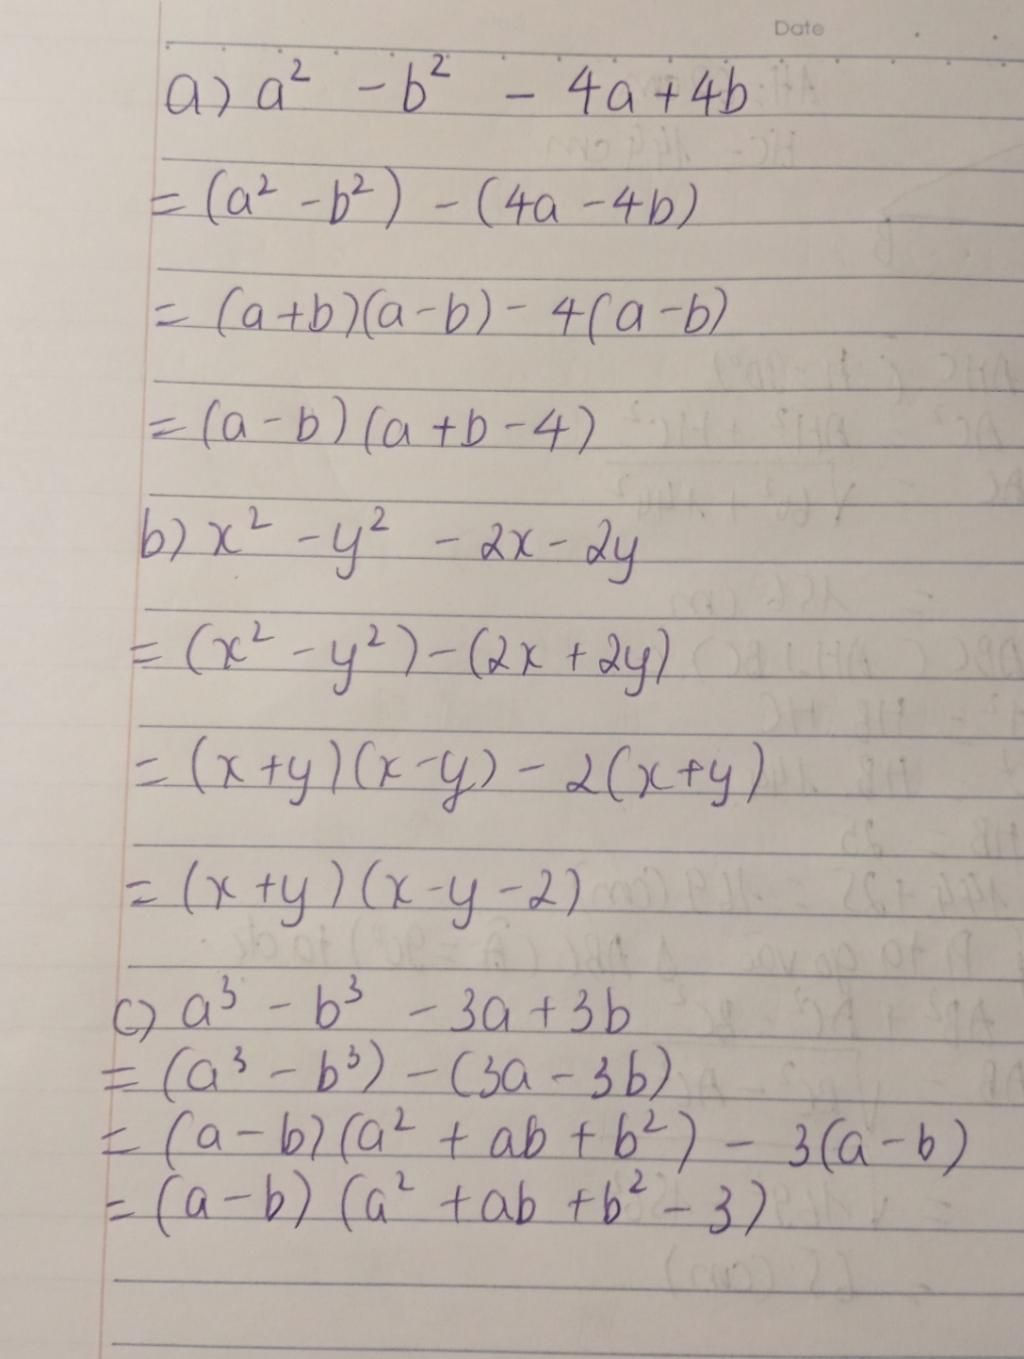 Date
a) a² - b² - 4a + 4b
= (a² - b²) - (4a - 4b)
= (a+b)(a-b) - 4(a-b)
= (a-b)(a+b-4)
b) x² - y² - 2x - 2y
= (x² - y²) - (2x + 2y)
= (x+y)(x-y) - 2(x+y)
= (x+y)(x-y-2)
c) a³ - b³ - 3a + 3b
= (a³ - b³) - (3a - 3b)
= (a-b)(a² + ab + b²) - 3(a-b)
= (a-b)(a² + ab + b² - 3)